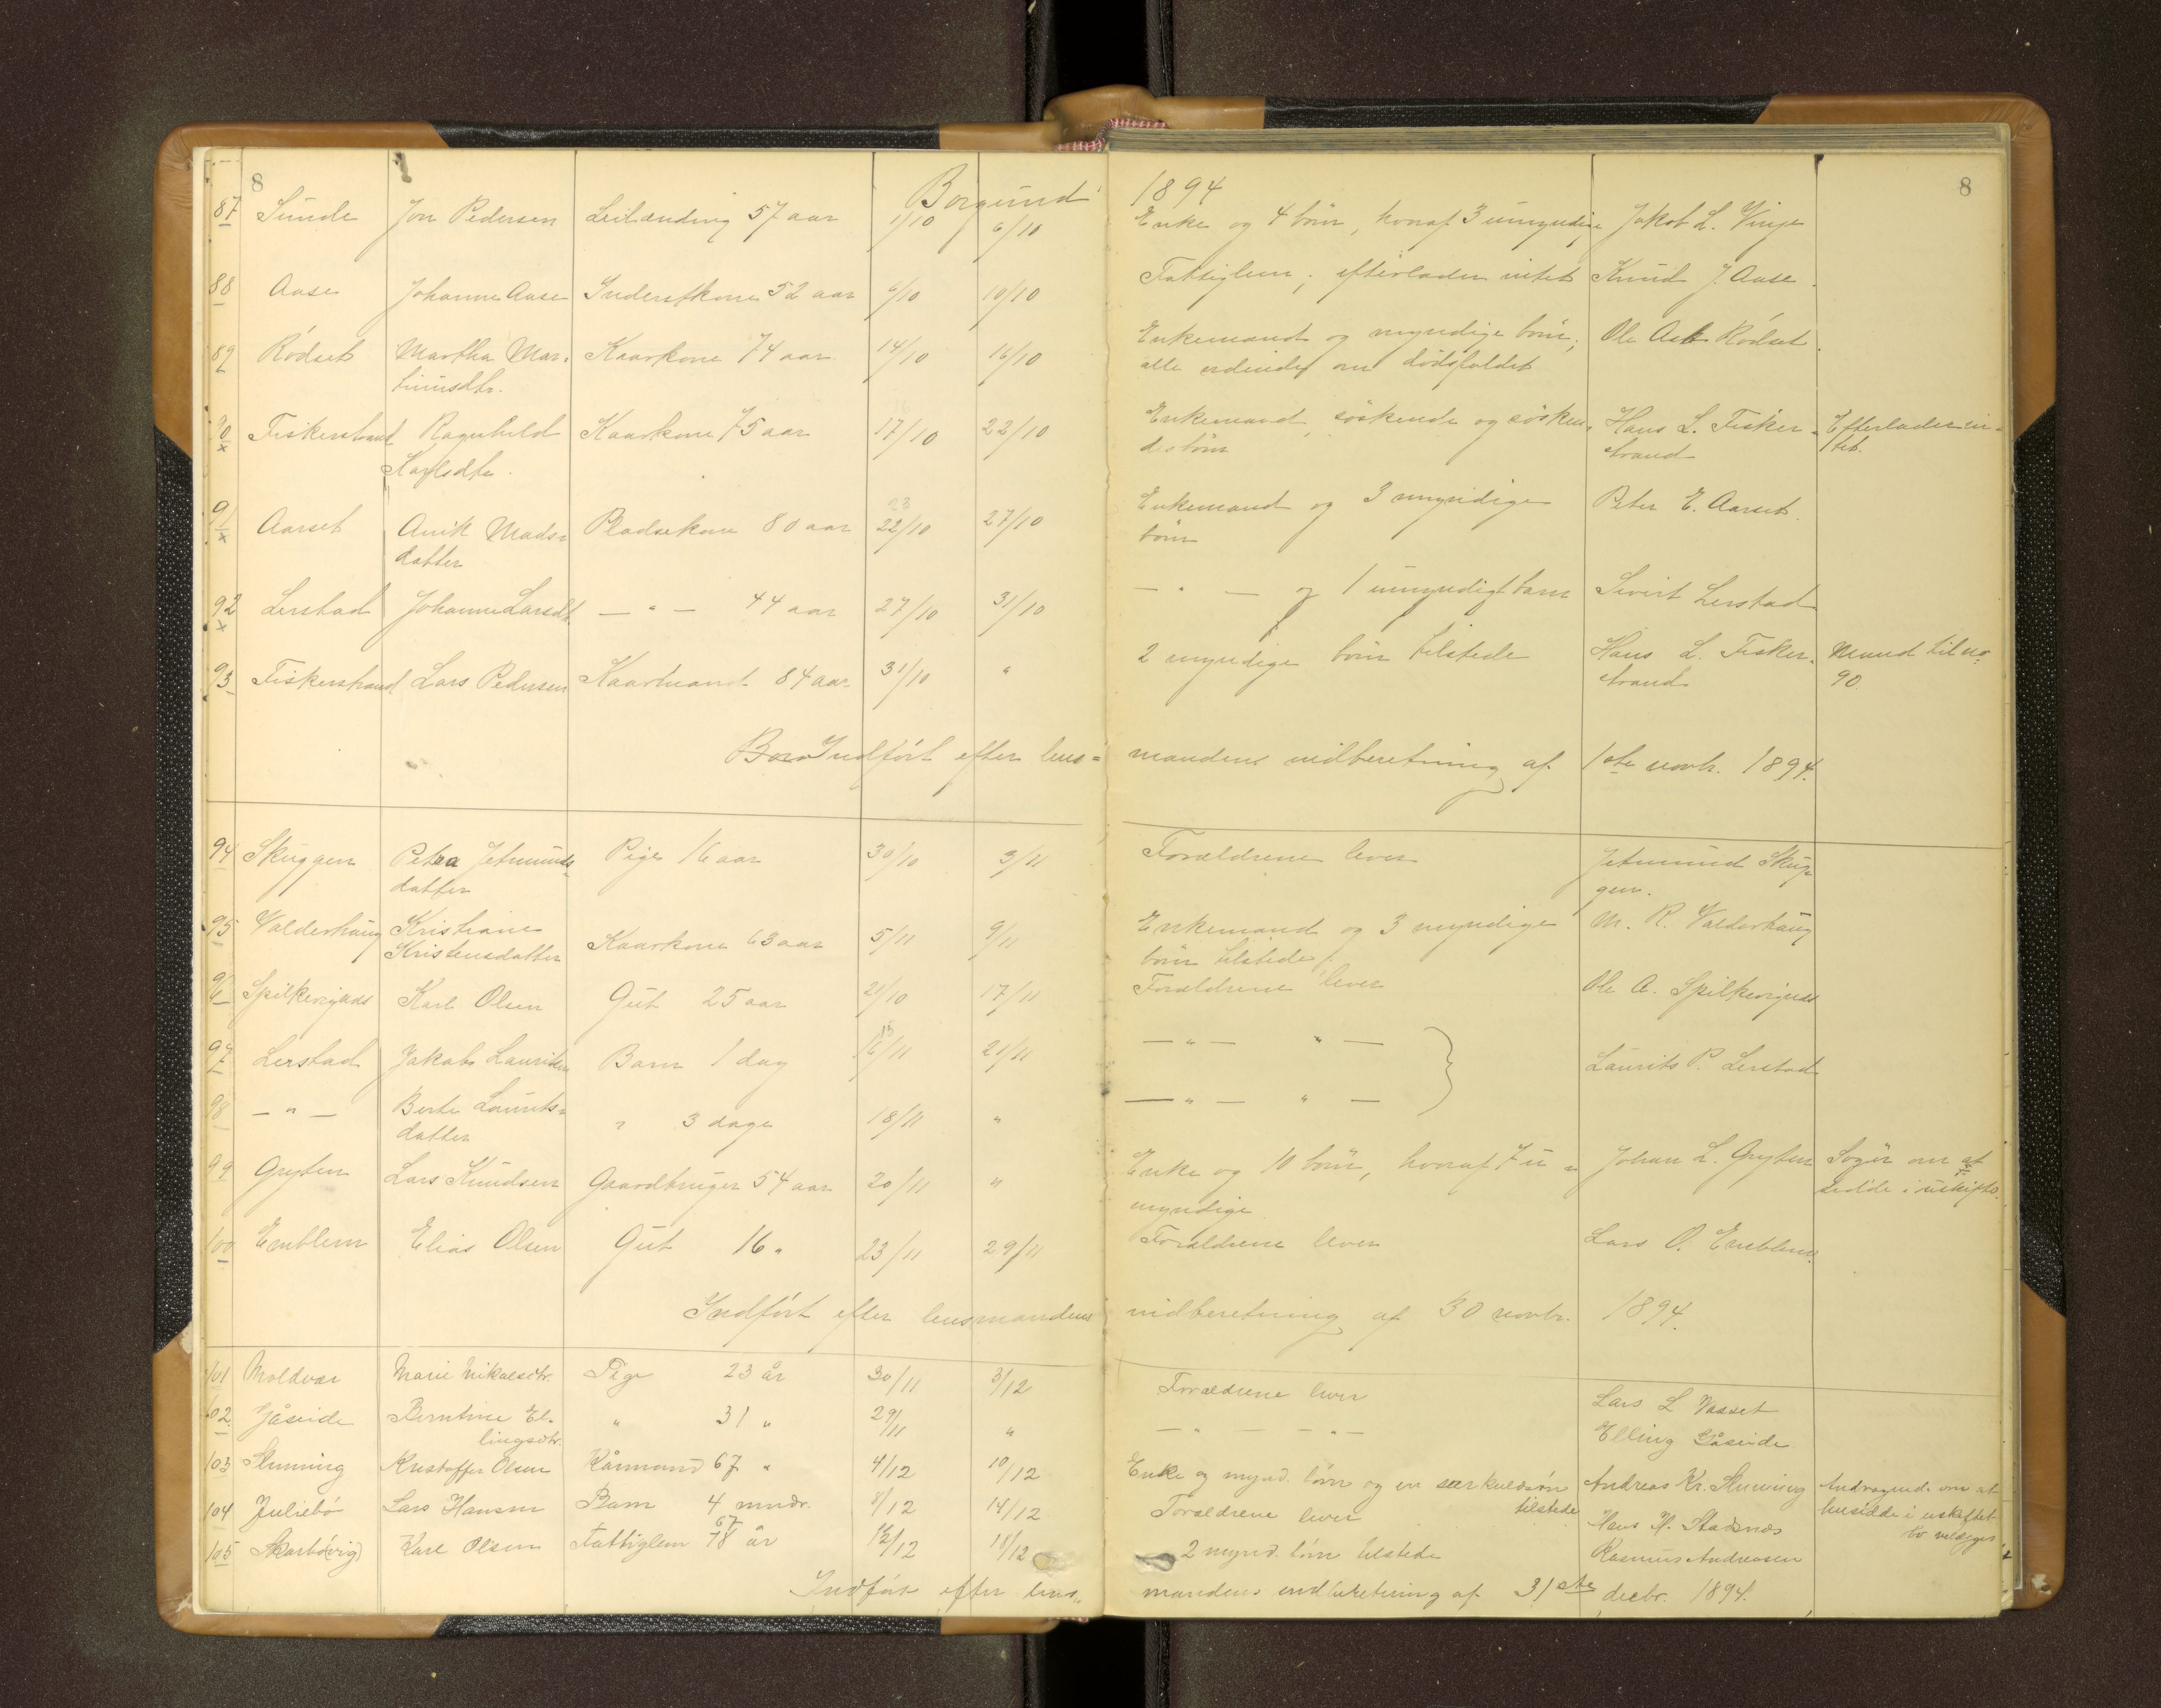 8 Borgund 1894 8
87 Sunde Jon Pedersen Leilænding 57 aar 1/10 6/10 Enke og 4 børn, hvoraf 3 umyndige Jakob L. Vinje
88 Aase Johanne Aase Inderstkone 52 aar 6/10 10/10 Fattiglem; efterlader intet Knud J. Aase.
89 Rødset Martha Mar- Kaarkone 74 aar 14/10 16/10 Enkemand og myndige børn; Ole Rødset.
tinusdtr. alle vidende om dødsfaldet
90 Fiskerstrand Ragnhild Kaarkone 75 aar 17/10 22/10 Enkemand, søskende og søsken- Hans L. Fisker- Efterlader in-
x Karlsdtr. desbørn strand tet.
91 Aarset Anik Mads- Pladsekone 80 aar 22/10 27/10 Enkemand og 3 myndige Peter E. Aarset.
x datter børn
92 Lerstad Johanne Larsdt. — " — 44 aar 27/10 31/10 — " — og 1 umyndigt barn Sivert Lerstad
x
93 Fiskerstrand Lars Pedersen Kaarmand 84 aar 31/10 " 2 myndige børn tilstede Hans L. Fisker- Mand til no.
strand 90.
Indført efter lens= mandens indberetning af 1ste novbr. 1894.
94 Skuggen Petra Jetmunds- Pige 16 aar 30/10 3/11 Forældrene lever Jetmund Skug-
datter gen.
95 Valderhaug Kristiane Kaarkone 63 aar 5/11 9/11 Enkemand og 3 myndige M. R. Valderhaug
Kristensdatter børn tilstede.
96 Spilkevignes Karl Olsen Gut 25 aar 21/10 17/11 Forældrene lever Ole A. Spilkevignes
97 Lerstad Jakob Lauritsen Barn 1 dag 16/11 21/11 — " — " — Laurits P. Lerstad
98 — " — Berte Laurits- " 3 dage 18/11 " — " — " —
datter
99 Gryten Lars Knudsen Gaardbruger 54 aar 20/11 " Enke og 10 børn, hvoraf 7 u- Johan L. Gryten Søger om at
myndige sidde i uskifte.
100 Emblem Elias Olsen Gut 16 " 23/11 29/11 Forældrene lever Lars O. Emblem.
Indført efter lensmandens indberetning af 30 novbr. 1894.
101 Moldvær Marie Nikolsdtr. Pige 23 år 30/11 3/12 Forældrene lever Lars L Vasset
102 Gåseide Berntine El- " 31 " 29/11 " — " — — " — Elling Gåseide
lingsdtr.
103 Slinning Kristoffer Olsen Kårmand 67 " 4/12 10/12 Enke og mynd. børn og en særkuldsøn Andreas Kr. Slinning Andragende om at
tilstede hensidde i uskiftet
104 Juliebø Lars Hansen Barn 4 mndr. 8/12 14/12 Forældrene lever Hans H. Stadsnes bo
67
105 Skarbøvig Karl Olsen Fattiglem 78 år 12/12 18/12 2 mynd. børn tilstede Rasmus Andreasen
Indført efter lens- mandens indberetning af 31ste decbr. 1894.